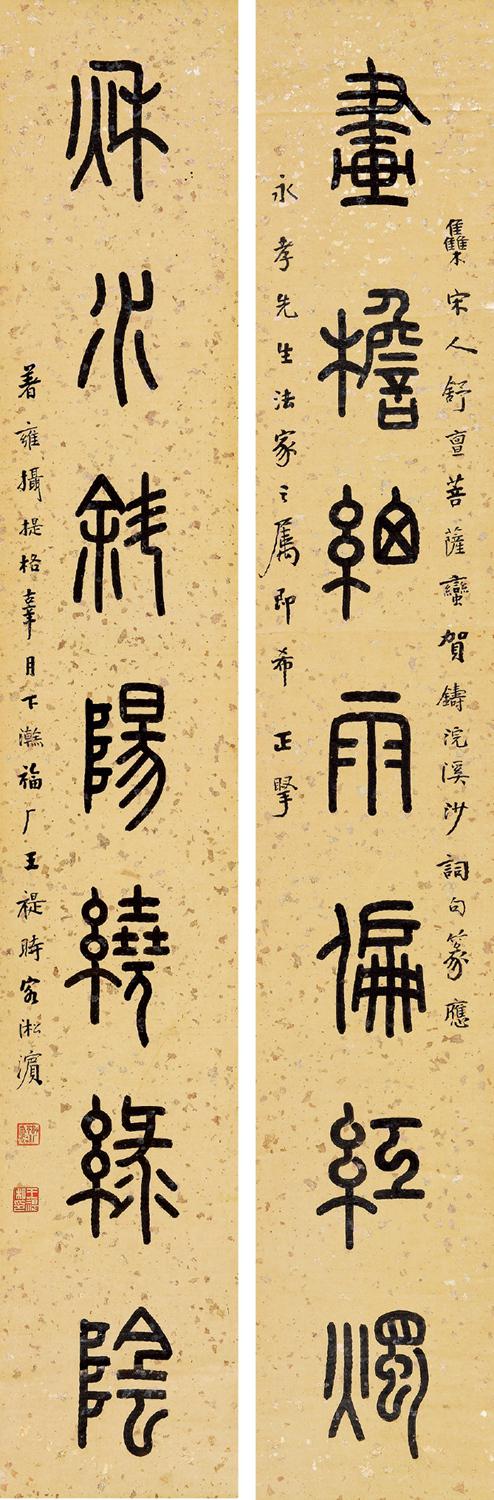 集宋人舒亶菩薩蠻賀鑄浣溪沙詞句篆應
畫檐細雨偏紅燭
永孝先生法家之属即希正掔
秌水斜陽繞綠陰
著雍攝提格辜月下澣福厂王禔時客淞濱